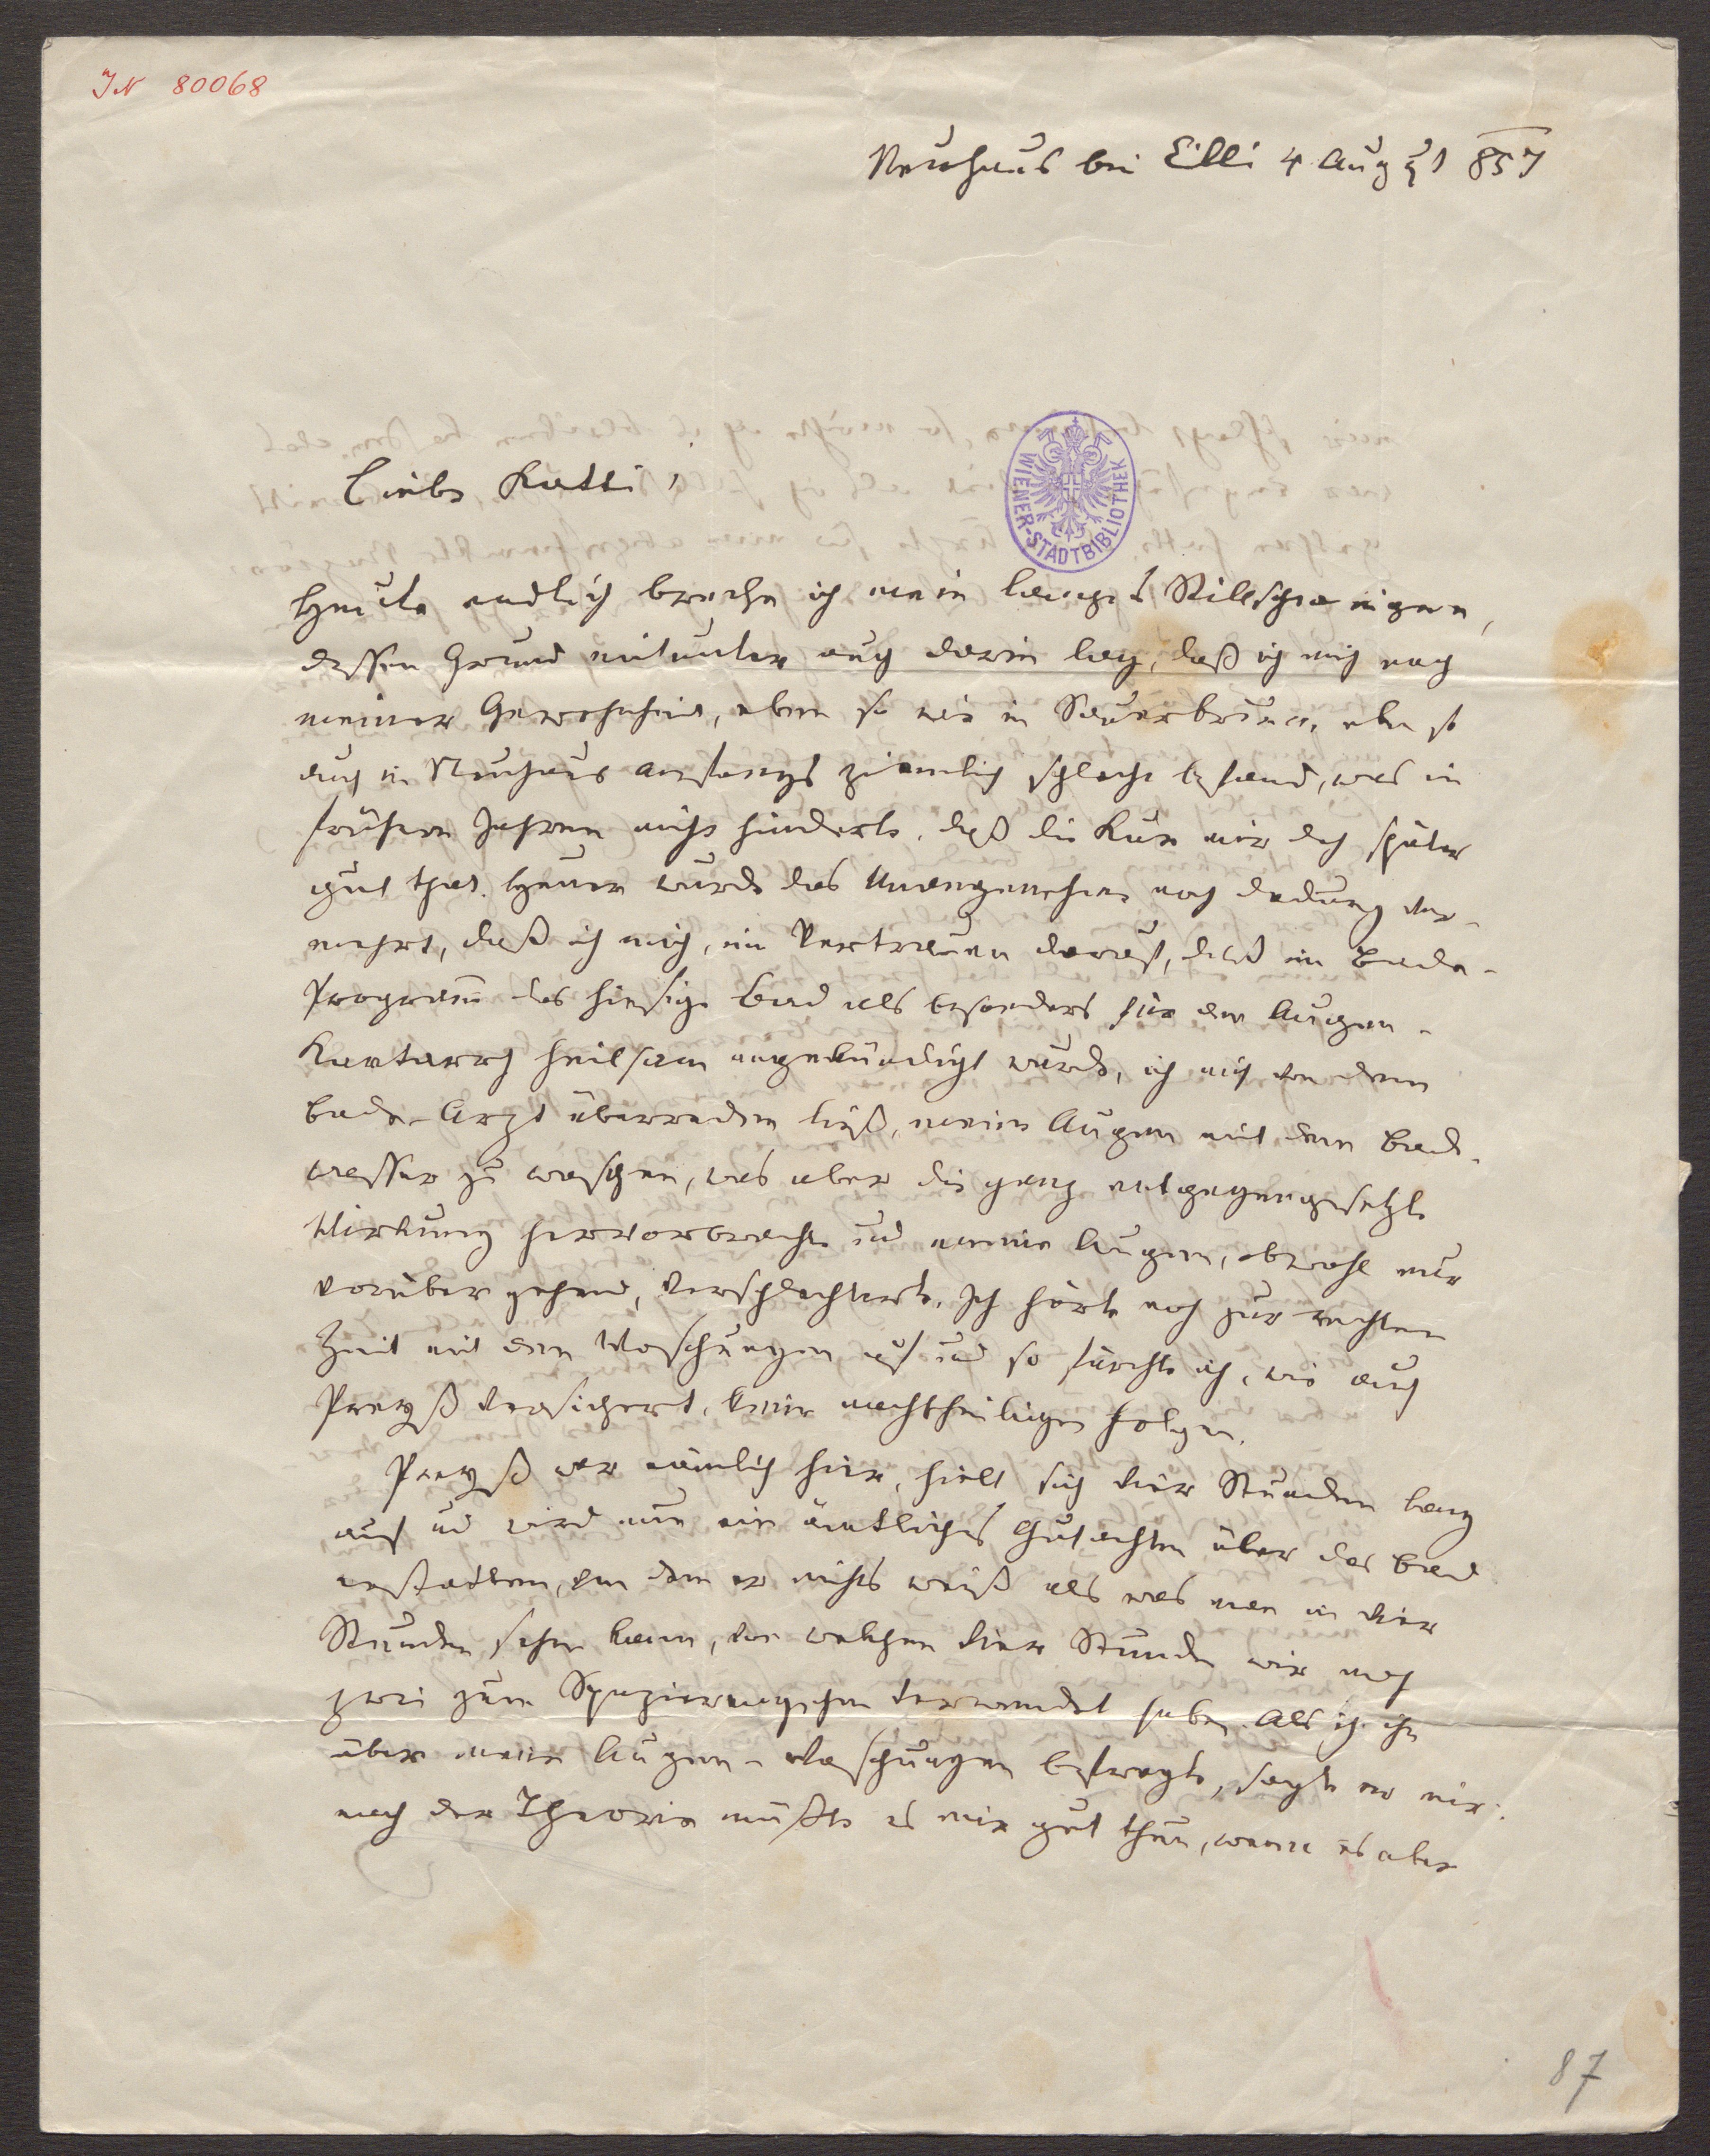 IN 80068
Neuhaus bei Cilli 4 August 857
Liebe Katti,
WIENER-STADTBIBLIOTHEK
Heute endlich breche ich mein langes Stillschweigen,
dessen Grund mitunter auch darin lag, daß ich mich nach
meiner Gewohnheit, eben so wie in Sauerbrunn, eben so
auch in Neuhaus anfangs ziemlich schlecht befand, was in
frühern Jahren nicht hinderte, daß die Kur mir doch später
gut that. Heuer wurde das Unangenehme noch dadurch ver-
mehrt, daß ich mich, im Vertrauen darauf, daß im Bade-
Programm das hiesige Bad als besonders für den Augen-
Kartarrh heilsam angekündigt wurde, ich mich von dem
Bade-Arzt überreden ließ, meine Augen mit dem Bad-
wasser zu waschen, was aber die ganz entgegengesetzte
Wirkung hervorbrachte und meine Augen, obwohl nur
vorüber gehend, verschlechterte. Ich hörte noch zur rechten
Zeit mit den Waschungen auf und so fürchte ich, wie auch
Preyß versichert, keine nachtheiligen Folgen.
Preyß war nämlich hier, hielt sich vier Stunden lang
auf und wird nun ein ämtliches Gutachten über das Bad
erstatten, von dem er nichts weiß als was man in vier
Stunden sehen kann, von welchen vier Stunden wir noch
zwei zum Spazierengehen verwendet haben. Als ich ihn
über meine Augen-Waschungen befragte, sagte er mir:
nach der Theorie müßte es mir gut thun, wenn es aber
87